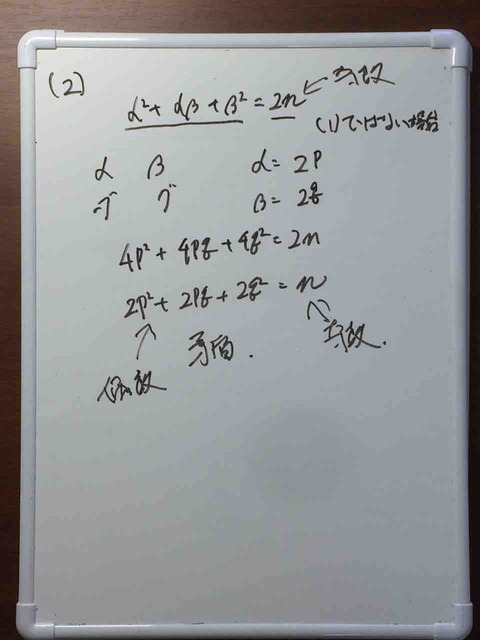 (2)
α²+αβ+β²=2n ← 奇数
(1)ではない場合
α β α=2p
グ グ β=2q
4p²+4pq+4q²=2n
2p²+2pq+2q²=n
矛盾. 奇数.
偶数